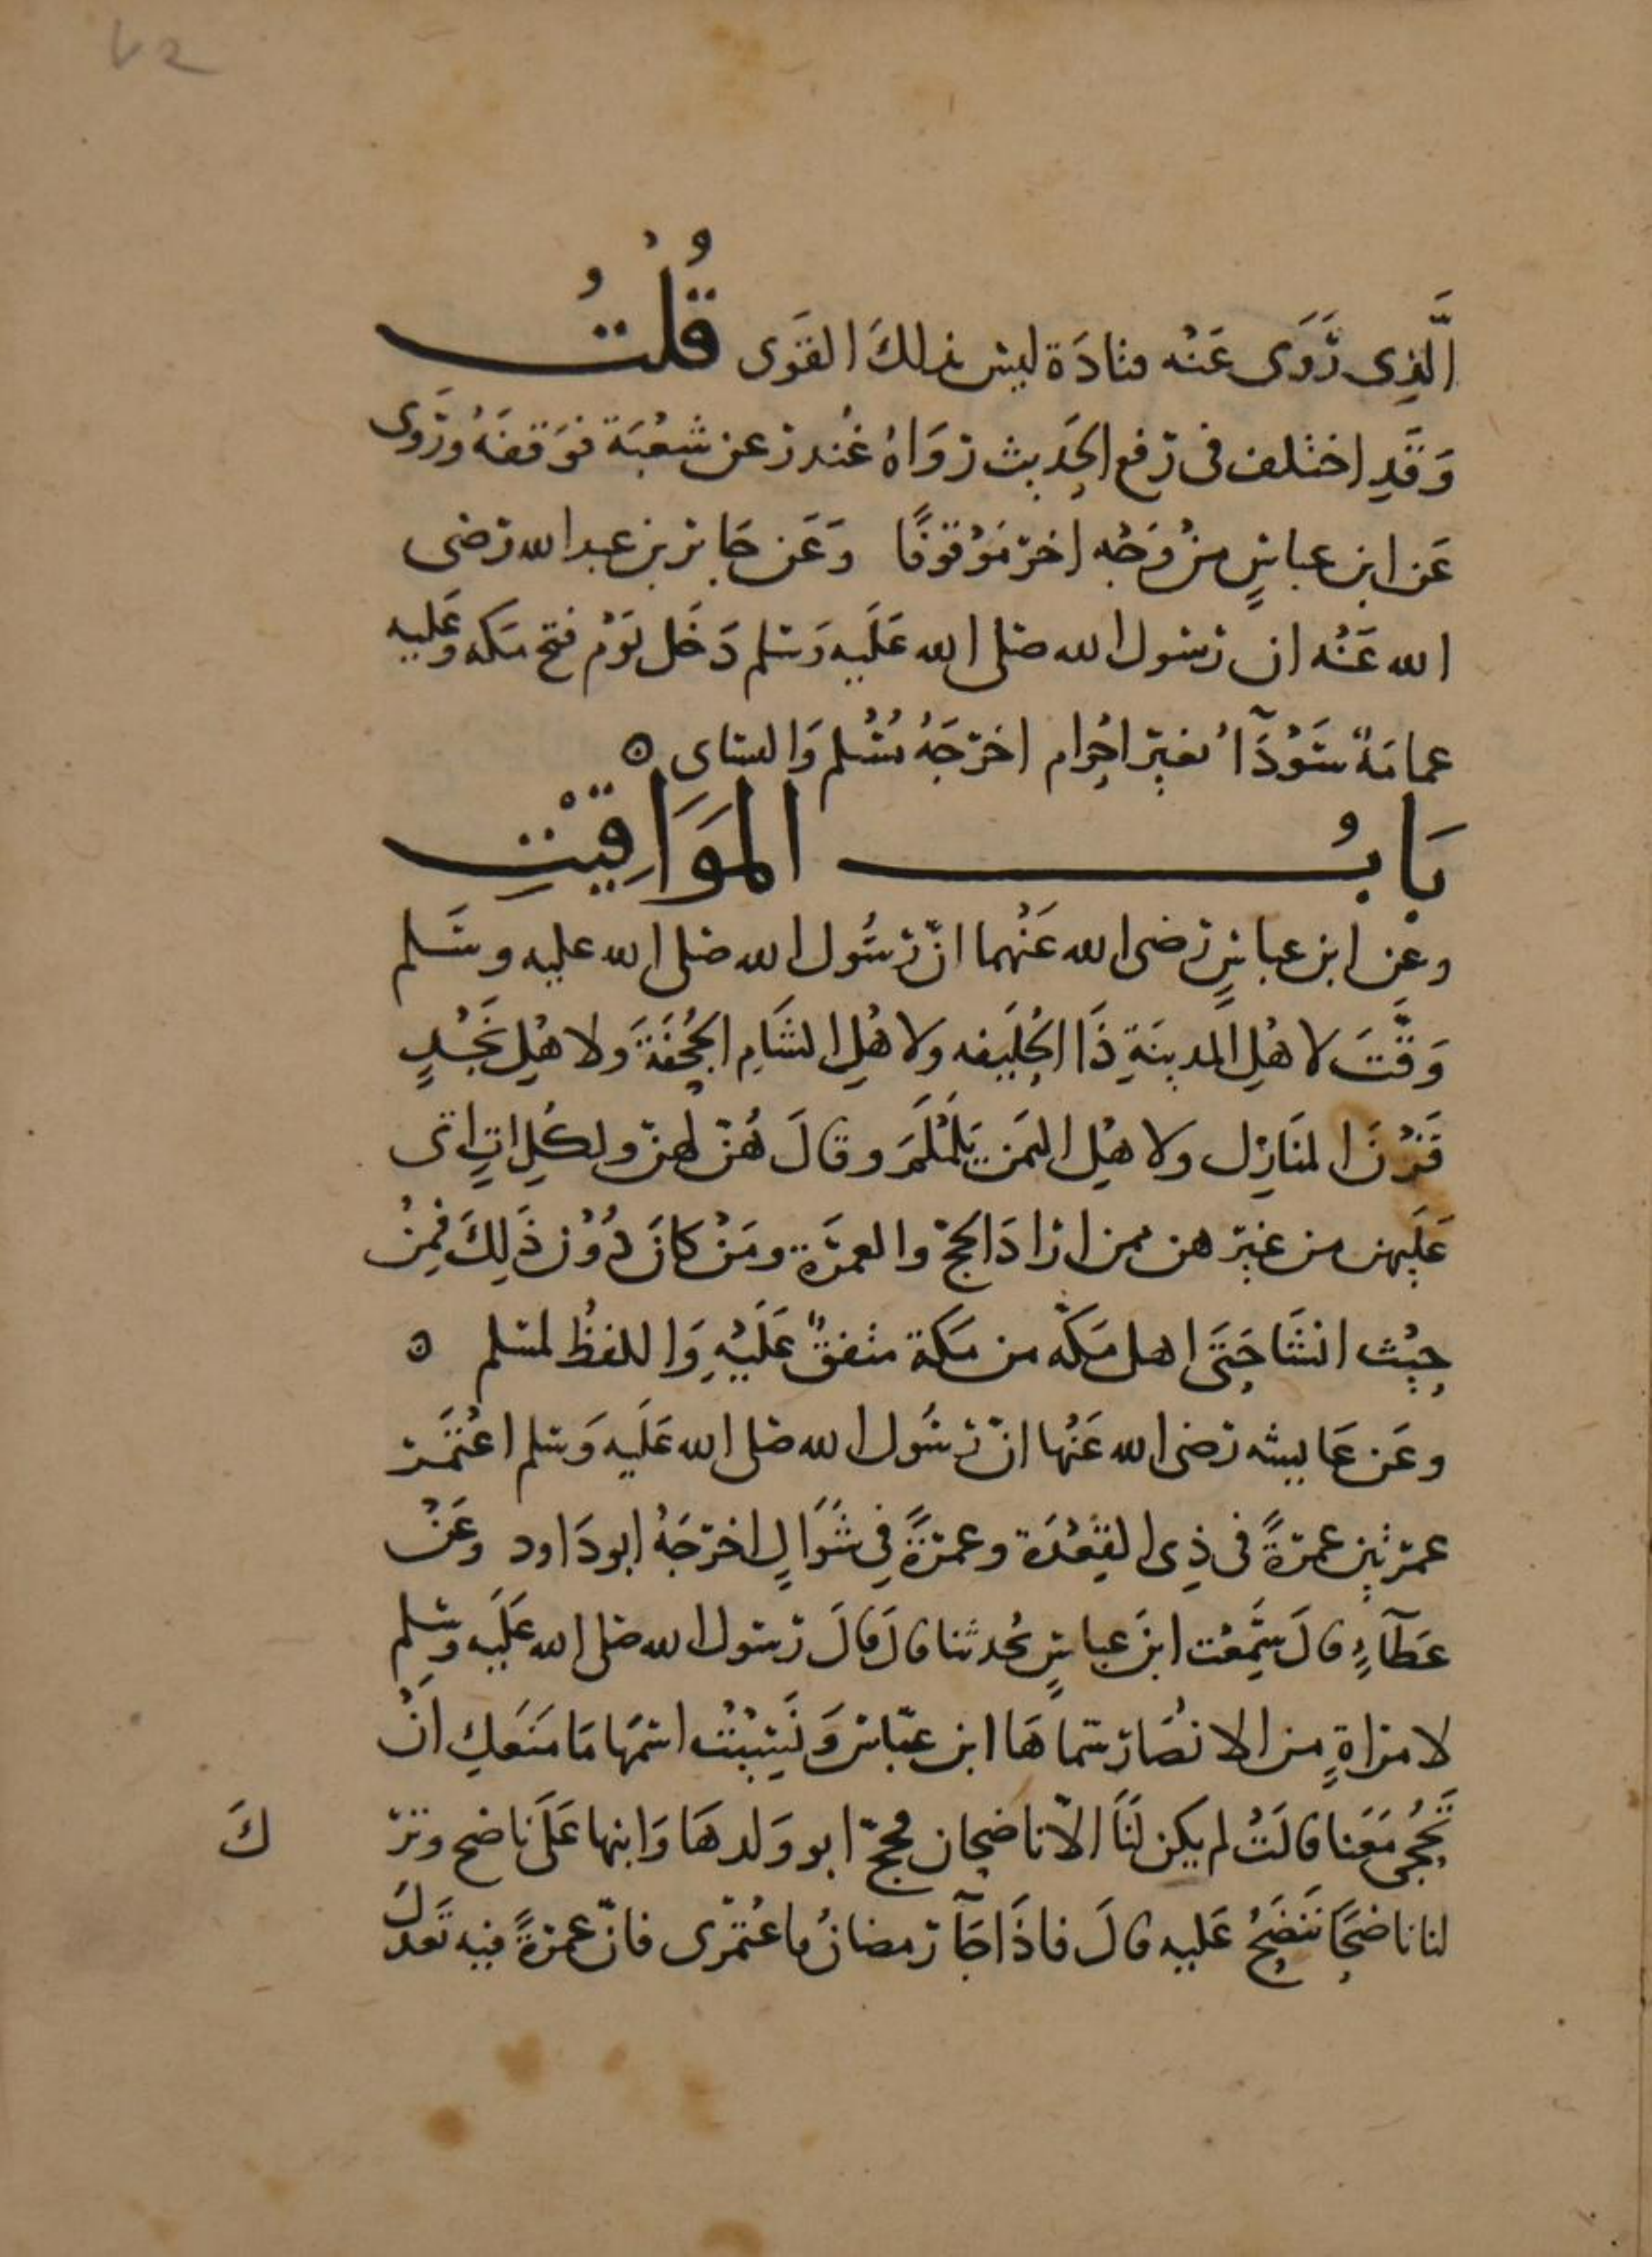 ٧٢
الَّذِى رَوَى عَنْه قتادَة ليس بذلكَ القَوى قُلْتُ
وَقَدِ اختلف فى رَفع الحَديث رَوَاهُ غُندر عن شعْبَة فوَقفَهُ ورَوى
عَن ابن عباسٍ منْ وَجْه اخر مَوْقوفًا وَعَن جَابر بن عبد الله رَضى
الله عَنْه ان رَسُول الله صَلى الله عَلَيه وَسَلم دَخَل يَوْم فتح مكه وَعَليه
عمامَةٌ سَوْدَآءُ بغيْر احْرام اخرَجَهُ مُسْلم وَالنساى ه
بَابُ المَوَاقِيْتِ
وعن ابن عباسٍ رَضى الله عَنْهما انّ رَسُول الله صَلى الله عليه وسَلم
وَقَّتَ لاهْلِ المدينَةِ ذَا الحُلَيفه ولاهْلِ الشَامِ الجُحْفَةَ وَلاهْلِ نَجْدٍ
قَرْنَ المنَازِل ولاهْلِ اليَمَن يَلَمْلَمَ وقالَ هُنّ لهنّ ولكُلِ اتٍ اتى
عَلَيهن من غيْر هن ممن ارَادَ الحَجّ والعمرَة ومَنْ كانَ دُوْن ذَلِكَ فمِنْ
حيْث انشَا حَتَى اهل مَكَّه من مَكة متفقٌ عَلَيْهِ وَاللفظُ لمسلم ه
وعَن عَايشه رَضى الله عَنْها انّ رَسُول الله صَلى الله عَلَيه وَسَلم اعْتَمَر
عمرَتين عمرَةً فى ذِى القِعْدَة وعمرَةً فِى شَوَالٍ اخرَجَهُ ابو دَاود وعَنْ
عَطَآءٍ قالَ سَمِعْت ابنَ عباسٍ يُحدثنا قالَ قالَ رَسُول الله صَلى الله عَلَيه وسَلم
لامرَاةٍ مِن الانْصَار سَماهَا ابن عبّاس وَنَسِيْتُ اسْمَها مَا مَنَعَكِ اَنْ
تَحُجى مَعَنا قالَتْ لم يكن لَنَا الاّ ناضحان فحجّ ابو وَلدهَا وَابنها عَلَى ناضح وتَرَ كَ
لنا ناضحًا نَنضَحُ عَليه قالَ فاذَا جَآ رَمضانُ فاعْتمرى فانّ عمرَةً فيه تَعدلُ